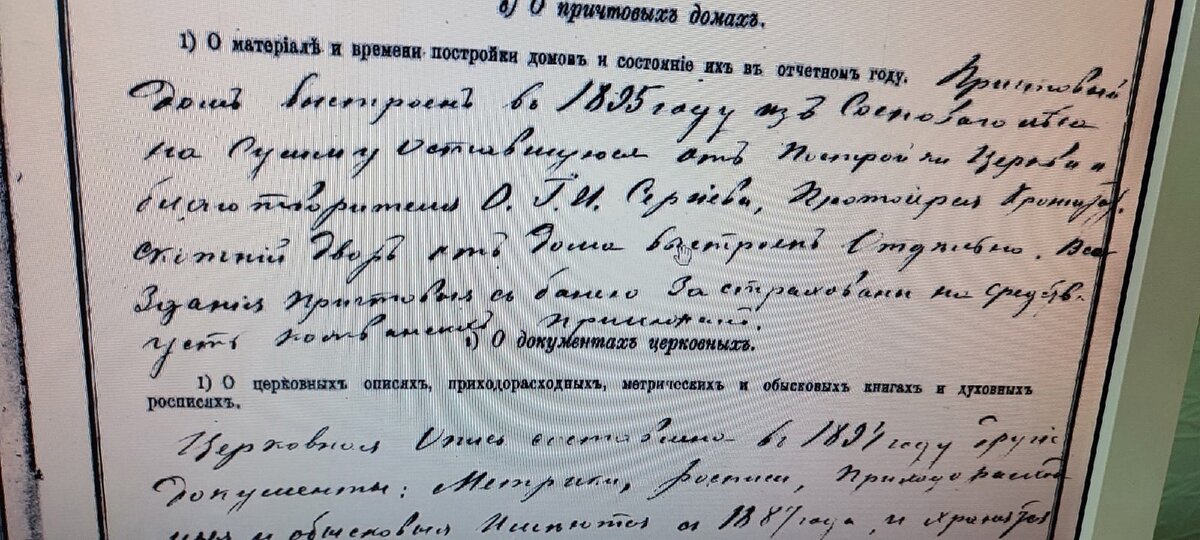 в) О причтовыхъ домахъ.
1) О матеріалѣ и времени постройки домовъ и состояніе ихъ въ отчетномъ году. Причтовый
Домъ выстроенъ въ 1895 году изъ Сосноваго лѣса
на Сумму Оставшуюся отъ Постройки Церкви и
благотворителя О. Г. И. Сергіева, Протоіерея Кронштад.
скотній дворъ отъ дома выстроенъ Отдѣльно. Все
Зданія причтовыя съ банею Застрахованы на средств.
прихожанъ.
г) О документахъ церковныхъ.
1) О церковныхъ описяхъ, приходорасходныхъ, метрическихъ и обысковыхъ книгахъ и духовныхъ
росписяхъ.
Церковная Опись составлена въ 1894 году другіе
документы: Метрики, росписи, Приходорасход
ныя и обысковыя Имеются съ 1887 года, и хранятся